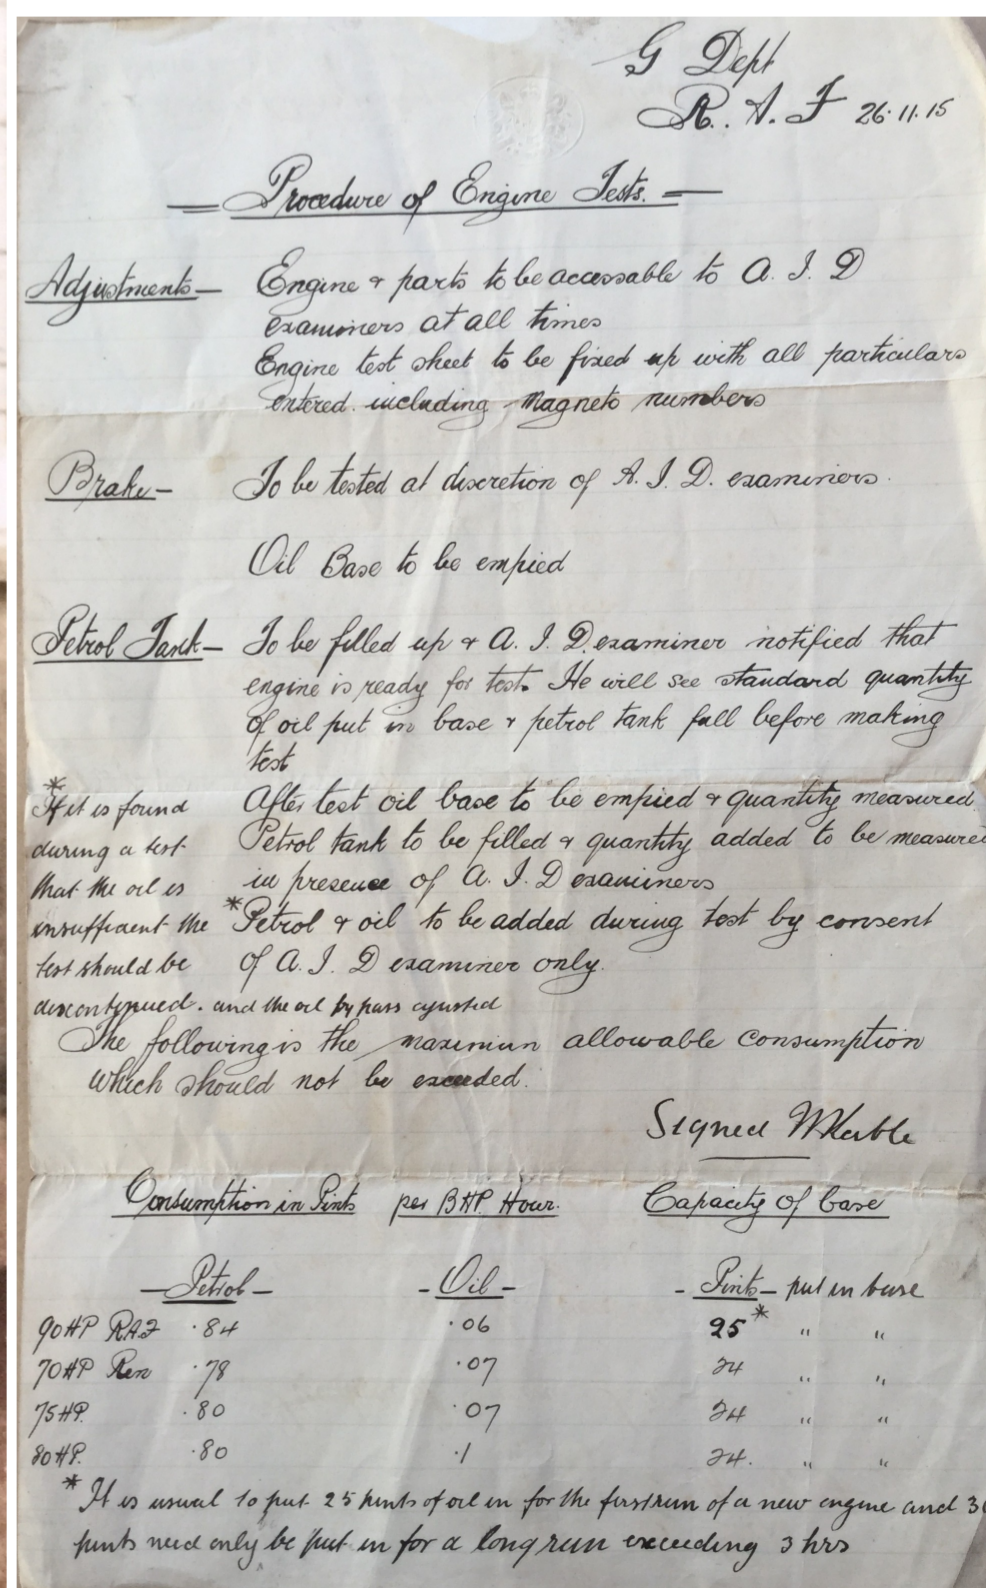 G Dept
R. A. F 26.11.15
Procedure of Engine Tests.
Adjustments — Engine & parts to be accessable to A. I. D
examiners at all times
Engine test sheet to be fixed up with all particulars
entered. including Magneto numbers
Brake — To be tested at discretion of A. I. D. examiners.
Oil Base to be empied
Petrol Tank — To be filled up & A. I. D. examiner notified that
engine is ready for test. He will see standard quantity
of oil put in base & petrol tank full before making
test
After test oil base to be empied & quantity measured.
Petrol tank to be filled & quantity added to be measured
in presence of A. I. D examiners
*Petrol & oil to be added during test by consent
of A. I. D examiner only.
*
If it is found
during a test
that the oil is
insufficient the
test should be
discontinued. and the oil by pass ajusted
The following is the maximun allowable consumption
which should not be exceeded.
Signed
Consumption in Pints per BHP. Hour. Capacity of base
— Petrol — - Oil - - Pints — put in base
90 HP RAF .84 .06 25* " "
70 HP Ren .78 .07 24 " "
75 HP. .80 .07 24 " "
80 HP. .80 .1 24. " "
* It is usual to put 25 pints of oil in for the first run of a new engine and 30
pints need only be put in for a long run exceeding 3 hrs